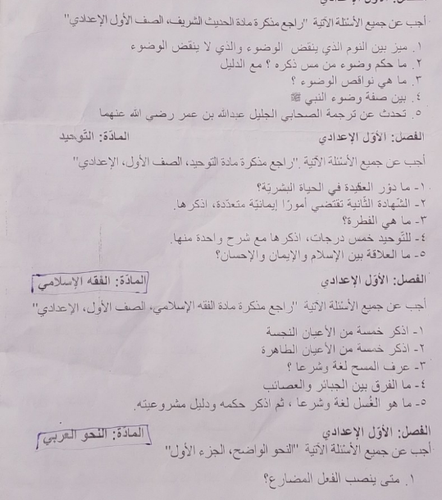 الفصل: الأول الإعدادي
أجب عن جميع الأسئلة الآتية "راجع مذكرة مادة الحديث الشريف، الصف الأول الإعدادي"
١. ميز بين النوم الذي ينقض الوضوء والذي لا ينقض الوضوء
٢. ما حكم وضوء من مس ذكره ؟ مع الدليل
٣. ما هي نواقص الوضوء ؟
٤. بين صفة وضوء النبي ﷺ
٥ تحدث عن ترجمة الصحابي الجليل عبدالله بن عمر رضي الله عنهما
الفصل: الأوّل الإعدادي المادّة: التّوحيد
أجب عن جميع الأسئلة الآتية ."راجع مذكرة مادة التوحيد، الصف الأول، الإعدادي"
١- ما دوْر العقيدة في الحياة البشريّة؟
٢- الشّهادة الثّانية تقتضي أمورًا إيمانيّة متعدّدة، اذكرها.
٣- ما هي الفطرة؟
٤- للتّوحيد خمس درجات، اذكرها مع شرح واحدة منها.
٥- ما العلاقة بين الإسلام والإيمان والإحسان؟
الفصل: الأوّل الإعدادي المادّة: الفقه الإسلامي
أجب عن جميع الأسئلة الآتية "راجع مذكرة مادة الفقه الإسلامي، الصف الأول، الإعدادي"
١- اذكر خمسة من الأعيان النجسة
٢- اذكر خمسة من الأعيان الطاهرة
٣- عرف المسح لغة وشرعا ؟
٤- ما الفرق بين الجبائر والعصائب
٥- ما هو الغُسل لغة وشرعا ، ثم اذكر حكمه ودليل مشروعيته.
الفصل: الأوّل الإعدادي المادّة: النحو العربي
أجب عن جميع الأسئلة الآتية "النحو الواضح، الجزء الأول"
١. متى ينصب الفعل المضارع؟